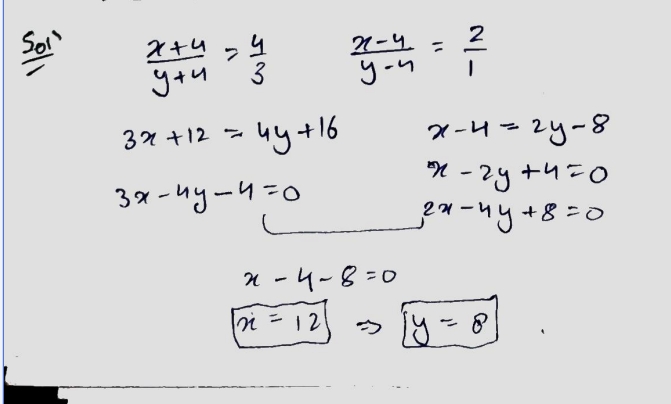 Solⁿ
(x+4)/(y+4) = 4/3    (x-4)/(y-4) = 2/1
3x+12 = 4y+16    x-4 = 2y-8
3x-4y-4=0    x-2y+4=0
2x-4y+8=0
x-4-8=0
x = 12 ⇒ y = 8